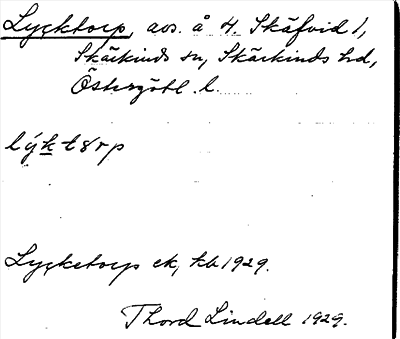 Lycktorp, avs. å 4. Skäfvid 1,
Skärkinds sn, Skärkinds hd,
Östergötl. l.
lýkt8rp
Lycketorp ek, kb 1929.
Thord Lindell 1929.